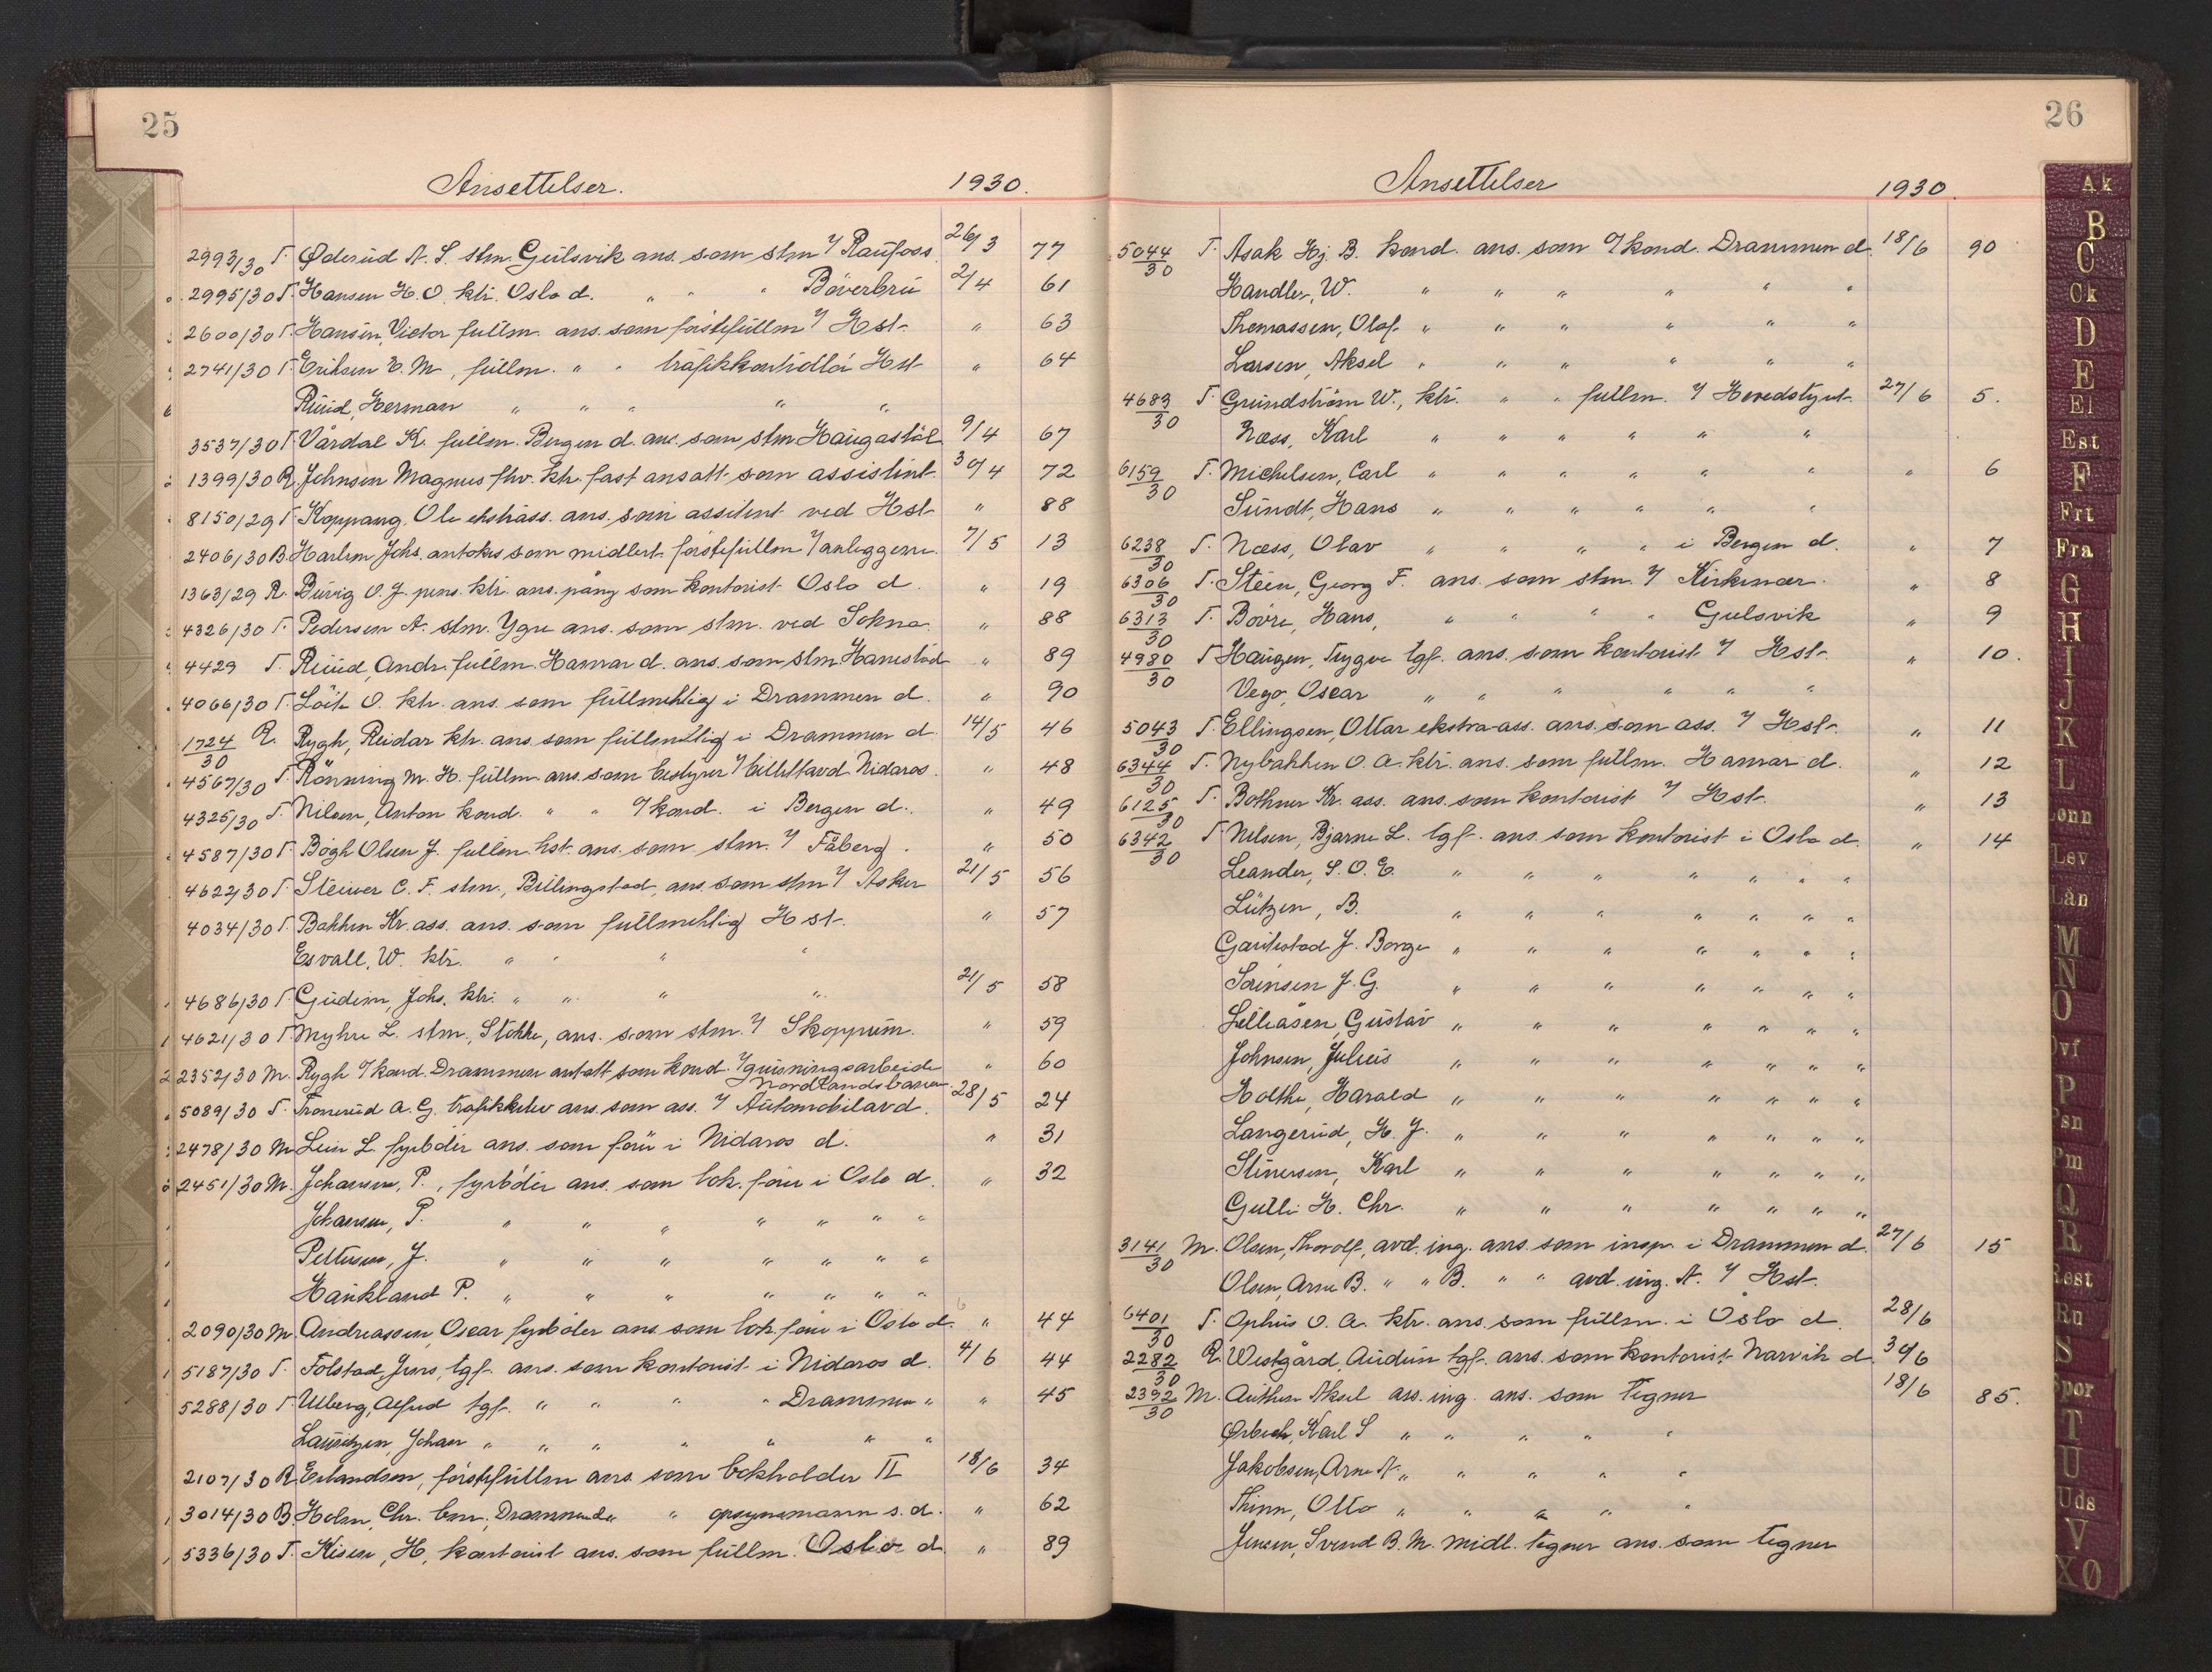 25
Ansettelser. 1930.
2993/30 T. Øderud A. S. stm. Gulsvik ans. som stm v/ Raufoss 26/3 77
2995/30 T. Hansen H. O. ktr. Oslo d. " " " Böverbru 2/4 61
2600/30 T. Hansen, Victor fullm. ans. som förstefullm v/ Hst. " 63
2741/30 T. Eriksen E. M., fullm. " " trafikkontrollör Hst " 64
Ruud, Herman " " " " "
3537/30 T. Vårdal K. fullm. Bergen d. ans. som stm Haugastöl 9/4 67
1399/30 R. Johnsen Magnus fhv. ktr. fast ansatt som assistent 30/4 72
8150/29 T. Koppang, Ole ekstrass. ans. som assistent ved Hst " 88
2406/30 B. Harlem Johs. antokes som midlert. förstefullm v/ anleggene. 7/5 13
1363/29 R. Burvig O. J. pens. ktr. ans. påny som kontorist Oslo d. " 19
4326/30 T. Pedersen A. stm. Ygre ans. som stm. ved Sokna. " 88
4429 T. Ruud, Andr. fullm. Hamar d. ans. som stm Hanestad " 89
4066/30 T. Löite O. ktr. ans. som fullmektig i Drammen d. " 90
1724/30 R. Rygh, Reidar ktr. ans. som fullmektig i Drammen d. 14/5 46
4567/30 T. Rönning M. H. fullm ans. som bestyrer v/ billettavd. Nidaros. " 48
4325/30 T. Nilsen, Anton kond. " " o/kond. i Bergen d. " 49
4587/30 T. Bögh Olsen J. fullm. hst. ans. som stm. v/ Fåberg. " 50
4622/30 T. Steiwer C. F. stm., Billingstad, ans. som stm v/ Asker 21/5 56
4034/30 T. Bakken Kr. ass. ans. som fullmektig Hst. " 57
Esvall, W. ktr. " " " "
4686/30 T. Gudim, Johs. ktr. " " " " 21/5 58
4621/30 T. Myhre L. stm., Stokke, ans. som stm. v/ Skoppum. " 59
2352/30 M. Rygh o/kond. Drammen antatt som kond. v/ grusningsarbeide Nordlandsbanen. " 60
5089/30 T. Tronerud A. G. trafikkelev ans. som ass. v/ Automobilavd. 28/5 24
2478/30 M. Lein L. fyrböter ans. som förer i Nidaros d. " 31
2451/30 M. Johansen, P., fyrböter ans. som lok. förer i Oslo d. " 32
Johansen, P. " " " " " " "
Pettersen, J. " " " " " " "
Haukland P. " " " " " " "
2090/30 M. Andreassen, Oscar fyrböter ans. som lok. förer i Oslo d. " 44
5187/30 T. Tolstad, Jens, tgf. ans. som kontorist i Nidaros d. 4/6 44
5288/30 T. Ulberg, Alfred tgf. " " " " Drammen " " 45
Lauritzen, Johan " " " " " " "
2107/30 R. Erlandsen, förstefullm ans. som bokholder II 18/6 34
3014/30 B. Holm, Chr. bm., Drammen d. " " opsynsmann s. d. " 62
5336/30 T. Kisen, H, kontorist ans. som fullm. Oslo d. " 89
26
Ansettelser 1930.
5044/30 T. Asak Hj. B. kond. ans. som o/kond. Drammen d. 18/6 90
Handler, W. " " " " " "
Thomassen, Olaf. " " " " " "
Larsen, Aksel " " " " " "
4683/30 T. Grundström W., ktr. " " fullm. v/ Hovedstyret. 27/6 5.
Næss, Karl " " " " " "
6159/30 T. Michelsen, Carl " " " " " " " 6
Sundt, Hans " " " " " "
6238/30 T. Næss, Olav " " " " i Bergen d. " 7
6306/30 T. Steen, Georg F. ans. som stm. v/ Kirkenær. " 8
6313/30 T. Bövre, Hans, " " " " Gulsvik " 9
4980/30 T Haugen, Trygve tgf. ans. som kontorist v/ Hst. " 10.
Vego, Oscar " " " " " "
5043/30 T. Ellingsen, Ottar ekstra-ass. ans. som ass. v/ Hst. " 11
6344/30 T. Nybakken O. A. ktr. ans. som fullm. Hamar d. " 12
6125/30 T. Bothner Kr. ass. ans. som kontorist v/ Hst. " 13
6342/30 T. Nilsen, Bjarne L. tgf. ans. som kontorist i Oslo d. " 14
Leander, S. O. E. " " " " " " "
Lützen, B. " " " " " " "
Garilestad J. Borge " " " " " " "
Sörnsen J. G. " " " " " " "
Lilleåsen Gustav " " " " " " "
Johnsen, Julius " " " " " " "
Holthe, Harald " " " " " " "
Langerud, H. J. " " " " " " "
Stenersen, Karl " " " " " " "
Gulli H. Chr. " " " " " " "
3141/30 M. Olsen, Thorolf, avd. ing. ans. som insp. i Drammen d. 27/6 15
Olsen, Arne B. " " B. " " avd. ing. A. v/ Hst.
6401/30 T. Ophus O. A. ktr. ans. som fullm. i Oslo d. 28/6
2282/30 R. Westgård, Audun tgf. ans. som kontorist Narvik d. 30/6
2392/30 M. Authen Aksel ass. ing. ans. som tegner 18/6 85.
Ørbech, Karl S " " " " "
Jakobsen, Arne A. " " " " "
Thinn, Otto " " " " "
Jensen, Svend B. M. midl. tegner ans. som tegner
Ak
B
C
Ck
D
E
El
Est
F
Frt
Fra
G
H
I
J
K
L
Lönn
Lev
Lån
M
N
O
Ovf
P
Psn
Pm
Q
R
Rest
Ru
S
Spor
T
U
Uds
V
XØ